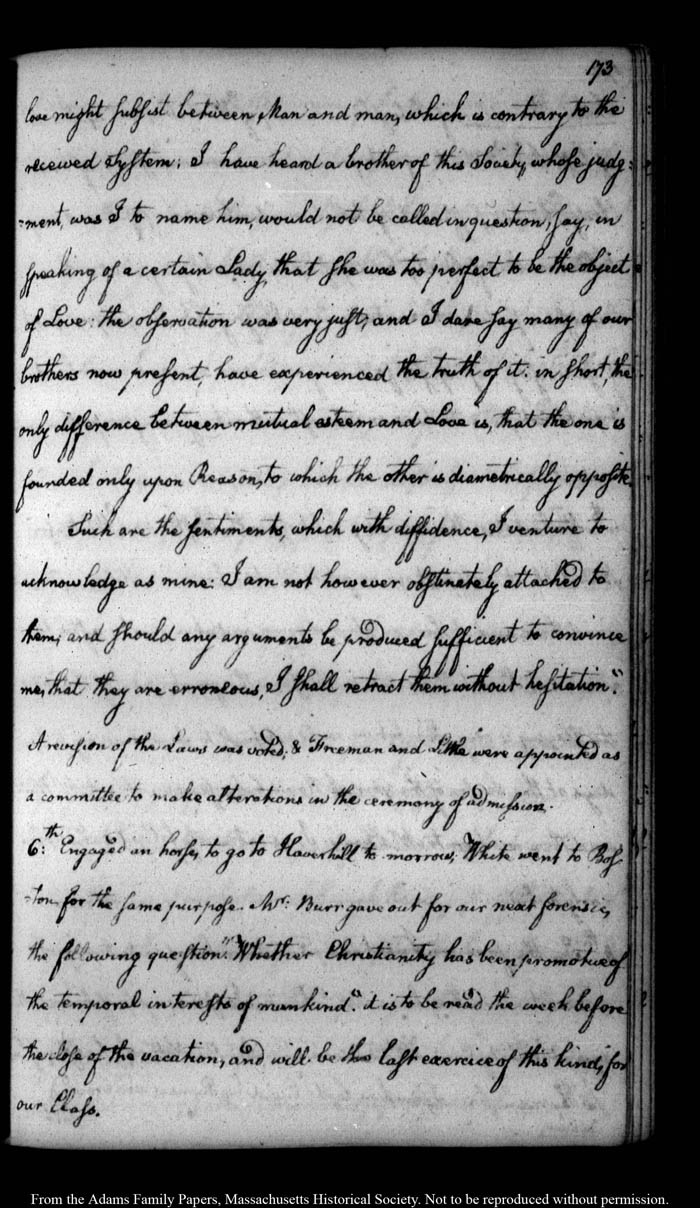 173
love might subsist between, Man and man, which is contrary to the
received System; I have heard a brother of this Society, whose judg-
-ment, was I to name him, would not be called in question, say, in
speaking of a certain Lady, that she was too perfect to be the object
of Love: the observation was very just, and I dare say many of our
brothers now present, have experienced the truth of it. in short, the
only difference between mutual esteem and Love is, that the one is
founded only upon Reason, to which the other is diametrically opposite.
Such are the sentiments, which with diffidence, I venture to
acknowledge as mine: I am not however obstinately attached to
them; and should any arguments be produced sufficient to convince
me, that they are erroneous, I shall retract them without hesitation."
A revision of the Laws was voted, & Freeman and Little were appointed as
a committee to make alterations in the ceremony of admission.
6:th Engaged an horse, to go to Haverhill to-morrow; White went to Bos-
-ton, for the same purpose. Mr: Burr gave out for our next forensic,
the following question. "Whether Christianity has been promotive of
the temporal interests of mankind". it is to be read the week before
the close of the vacation, and will be the last exercice of this kind, for
our Class.
From the Adams Family Papers, Massachusetts Historical Society. Not to be reproduced without permission.